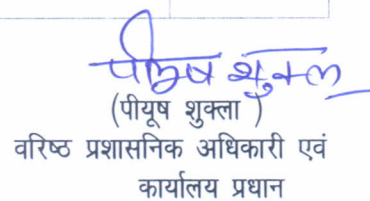 पीयूष शुक्ल
(पीयूष शुक्ला )
वरिष्ठ प्रशासनिक अधिकारी एवं
कार्यालय प्रधान